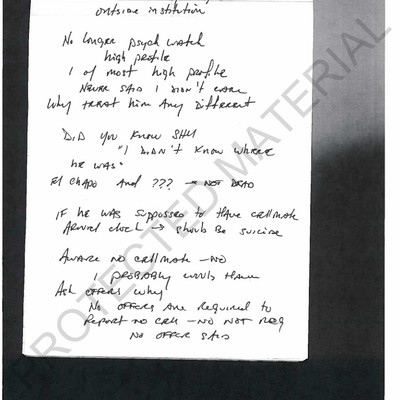 outside institution
No longer psych watch
high profile
1 of most high profile
Never said I didn't care
Why treat him any different
Did you know SHU
"I didn't know where
he was"
El Chapo and ??? → NOT DEAD
IF he was supposed to have cellmate
Around clock → should be suicide
Aware no cellmate – NO
I probably would have
Ask offers why
No offers are required to
Report no cell – NO NOT Req
NO OFFER SAID
PROTECTED MATERIAL